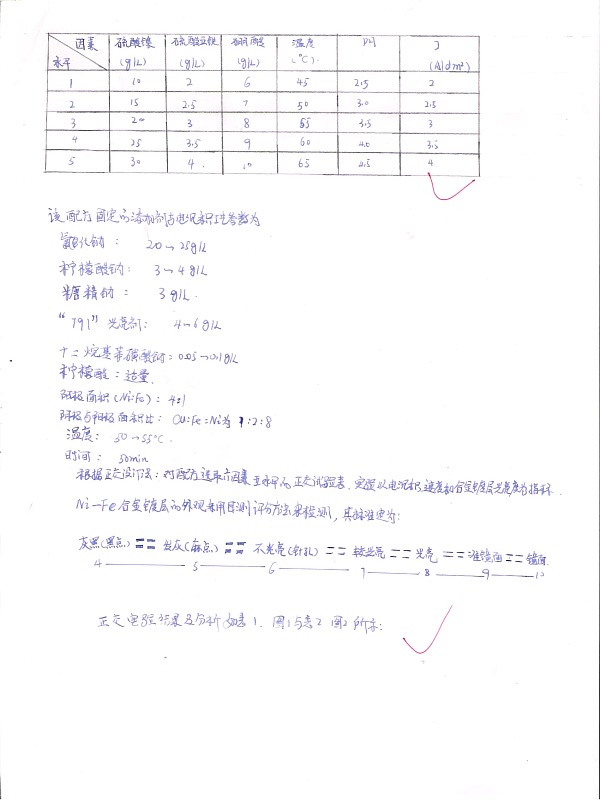 因素 硫酸镍 硫酸亚铁 硼酸 温度 PH J
水平 (g/L) (g/L) (g/L) (°C) (A/dm²)
1 10 2 6 45 2.5 2
2 15 2.5 7 50 3.0 2.5
3 20 3 8 55 3.5 3
4 25 3.5 9 60 4.0 3.5
5 30 4 10 65 4.5 4
该配方固定的添加剂与电沉积工艺参数为
氯化钠: 20→25g/L
柠檬酸钠: 3→4g/L
糖精钠: 3g/L.
"791"光亮剂: 4→6g/L
十二烷基苯磺酸钠:0.05→0.1g/L
柠檬酸:适量.
阳极面积(Ni:Fe): 4:1
阴极与阳极面积比: Cu:Fe:Ni为1:2:8
温度: 50→55°C.
时间: 30min
根据正交设计法:对配方选取六因素五水平的正交试验表.实验以电沉积速度和合金镀层光亮度为指标.
Ni-Fe合金镀层的外观采用目测评分方法来检测,其标准定为:
灰黑(黑点) == 发灰(麻点) == 不光亮(针孔) == 较光亮 == 光亮 == 准镜面 == 镜面.
4 5 6 7 8 9 10
正交实验结果及分析如表1.图1与表2 图2所示: